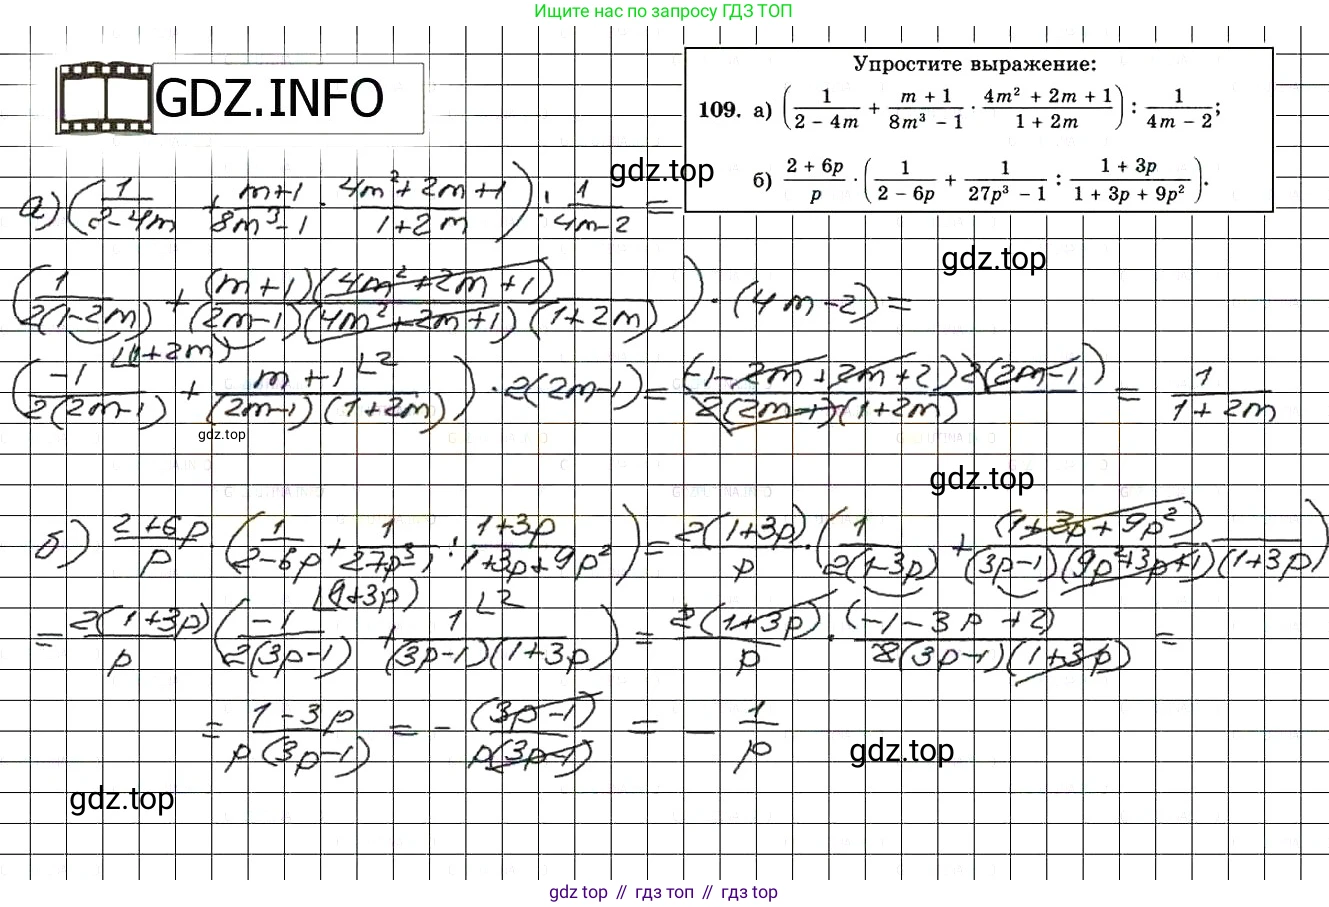 Ищите нас по запросу ГДЗ ТОП
GDZ.INFO
Упростите выражение:
109. а) (1/(2 − 4m) + (m + 1)/(8m³ − 1) · (4m² + 2m + 1)/(1 + 2m)) : 1/(4m − 2);
б) (2 + 6p)/p · (1/(2 − 6p) + 1/(27p³ − 1) : (1 + 3p)/(1 + 3p + 9p²)).
gdz.top
а) (1/(2−4m) + (m+1)/(8m³−1) · (4m²+2m+1)/(1+2m)) : 1/(4m−2) =
gdz.top
(1/(2(1−2m)) + ((m+1)(4m²+2m+1))/((2m−1)(4m²+2m+1)(1+2m))) · (4m−2) =
(−1/(2(2m−1)) ⌊(1+2m) + (m+1)/((2m−1)(1+2m)) ⌊2) · 2(2m−1) = ((−1−2m+2m+2)2(2m−1))/(2(2m−1)(1+2m)) = 1/(1+2m)
gdz.top
gdz.top
б) (2+6p)/p · (1/(2−6p) + 1/(27p³−1) : (1+3p)/(1+3p+9p²)) = (2(1+3p))/p · (1/(2(1−3p)) + (1+3p+9p²)/((3p−1)(9p²+3p+1)(1+3p)))
= (2(1+3p))/p (−1/(2(3p−1)) ⌊(1+3p) + 1/((3p−1)(1+3p)) ⌊2) = (2(1+3p))/p · (−1−3p+2)/(2(3p−1)(1+3p)) =
= (1−3p)/(p(3p−1)) = −(3p−1)/(p(3p−1)) = −1/p
gdz.top
gdz.top
gdz top // гдз топ // гдз top